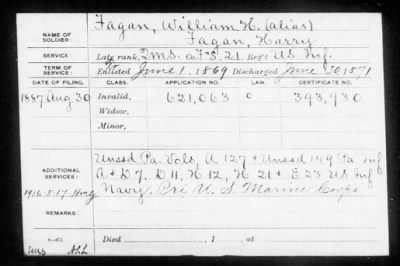 Fagan, William H. (alias)
NAME OF SOLDIER: Fagan, Harry
SERVICE: Late rank, 2 M.S. Co. F.S., 21 Reg't U.S. Inf.
TERM OF SERVICE: Enlisted June 1, 1869 Discharged June 30, 1871
DATE OF FILING. CLASS. APPLICATION NO. LAW. CERTIFICATE NO.
1887 Aug. 30 Invalid, 621,063 393,930
Widow,
Minor,
Unssd Pa. Vols, A 127 & Unssd 149 Pa Inf
ADDITIONAL SERVICES: A & D 7, D 11, H 12, H 21 & E 23 US Inf
1916-5-17 Navy, Pri U. S. Marine Corps
REMARKS:
Died , 1 , at